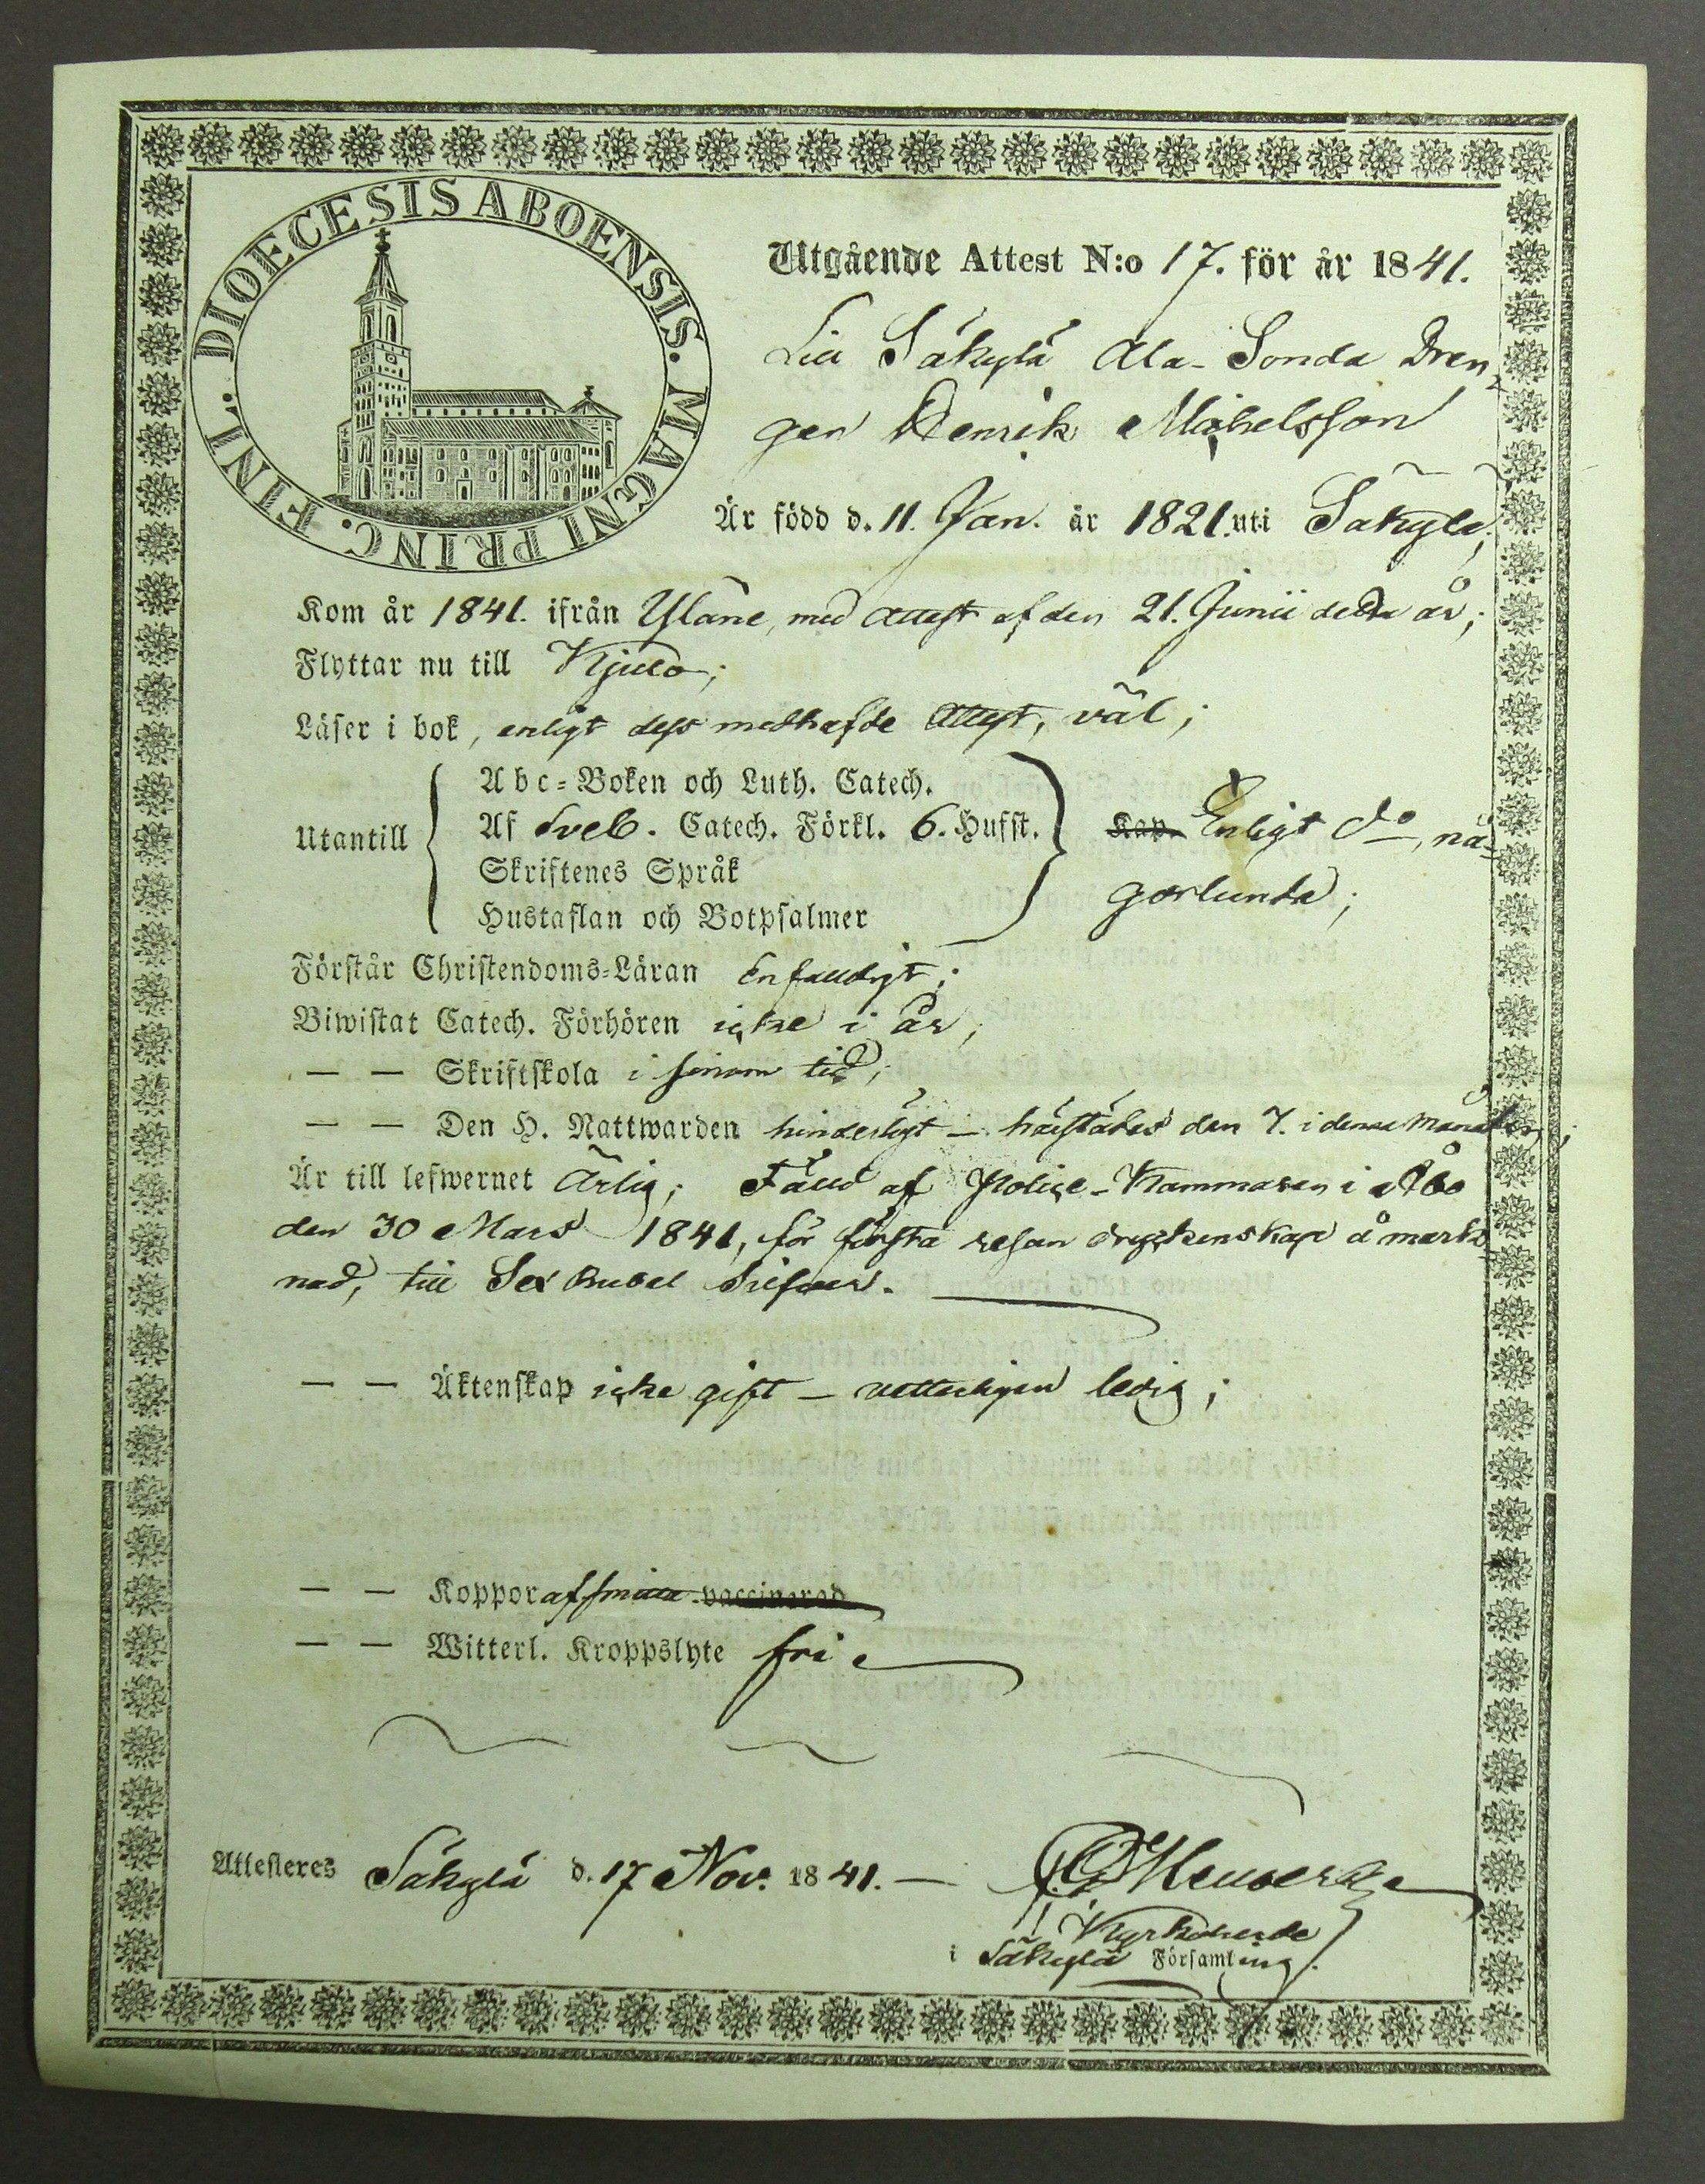 DIOECESIS ABOENSIS. MAGNI PRINC. FINL.
Utgående Attest N:o 17. för år 1841.
Säkylä Ala-Sonda Dren-
gen Henrik Michelsson
Är född d. 11. Jan. år 1821. uti Säkylä;
Kom år 1841. ifrån Yläne, med attest af den 21. Junii detta år;
Flyttar nu till Kjulo;
Läser i bok, enligt dess medhafde Attest, väl;
Utantill
Abc-Boken och Luth. Catech.
Af Sveb. Catech. Förkl. 6. Hufst.
Skriftenes Språk
Hustaflan och Botpsalmer
Kap. Enligt do, nå-
gorlunda;
Förstår Christendoms-Läran Enfaldigt;
Biwistat Catech. Förhören icke i år;
— — Skriftskola i sinom tid;
— — Den H. Nattwarden hinderligt — härstädes den 7. i denna Månaden;
Är till lefwernet Ärlig; Fälld af Police-Kammaren i Åbo
den 30 Mars 1841, för första resan dryckenskap å mark-
nad, till Sex Rubel Silfver.
— — Äktenskap icke gift — vetterligen ledig;
— — Koppor af smitta vaccinerad
— — Witterl. Kroppslyte fri
Attesteres Säkylä d. 17 Nov. 1841. —
Kyrkoherde
i Säkylä Församling.